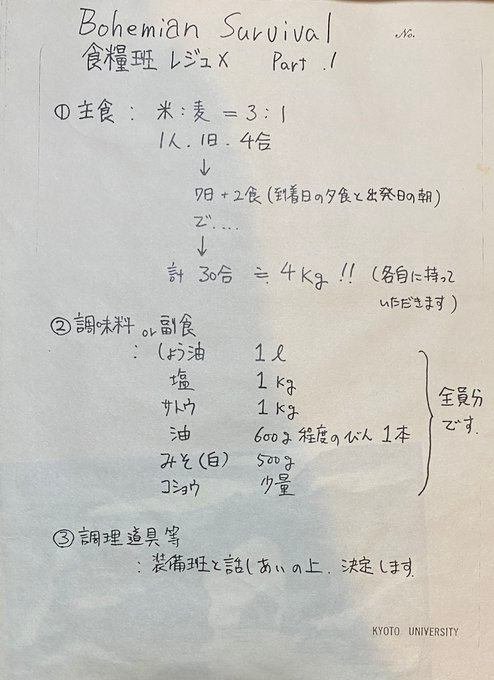 Bohemian Survival
No.
食糧班 レジュメ Part.1
① 主食 : 米:麦 = 3:1
1人.1日.4合
↓
7日+2食(到着日の夕食と出発日の朝)
で....
↓
計 30合 ≒ 4Kg!! (各自に持って
いただきます)
② 調味料 or 副食
: しょう油 1ℓ
塩 1Kg
サトウ 1Kg
油 600g程度のびん 1本
みそ(白) 500g
コショウ 少量
全員分
です.
③ 調理道具等
: 装備班と話しあいの上. 決定します.
KYOTO UNIVERSITY